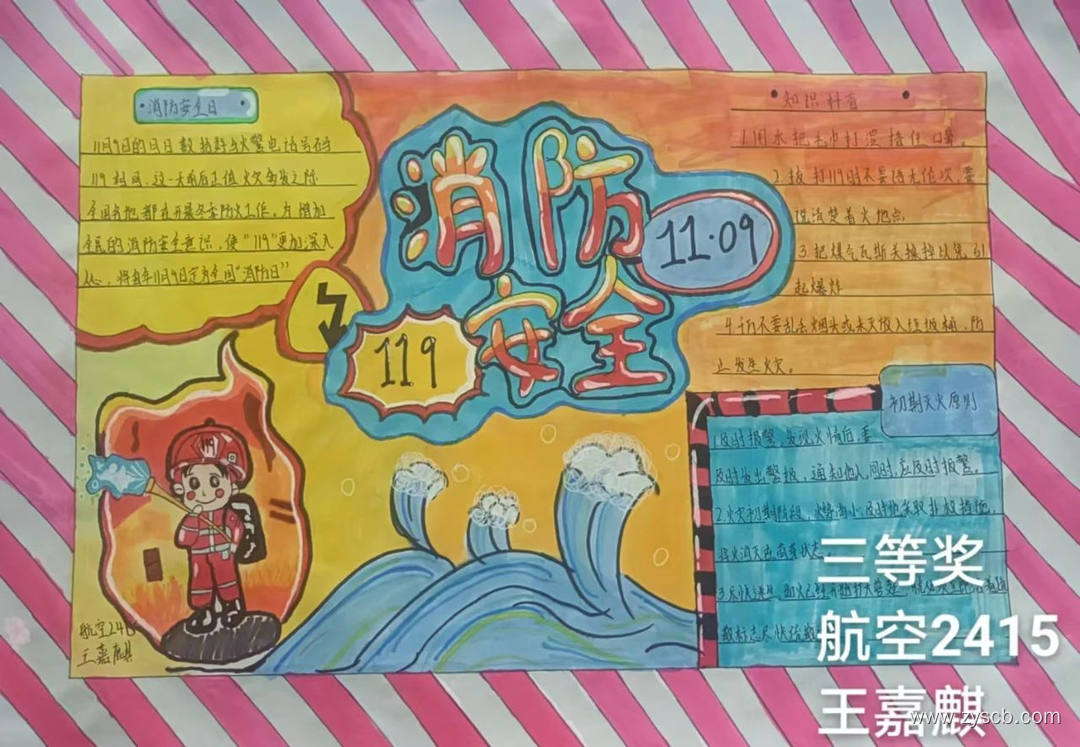 消防安全日
11月9日的月日数恰好与火警电话号码
119相同，这一天前后正值火灾多发之际
全国各地都在开展冬季防火工作。为增加
全民的消防安全意识，使"119"更加深入
人心，将每年11月9日定为全国"消防日"
消防
安全
11.09
119
知识科育
1.用水把毛巾打湿捂住口鼻。
2.拨打119时不要
说清楚着火地点
3.把煤气瓦斯关掉以免引
起爆炸
4.千万不要乱丢烟头或未灭放入垃圾桶，防
止发生火灾。
初期灭火原则
1.及时报警，发现火情后，要
及时发出警报，通知他人，同时，应及时报警。
2.火灾初期阶段，火势南小及时地采取扑救措施，
将火消灭
航空24
王嘉麒
三等奖
航空2415
王嘉麒
www.zyscb.com